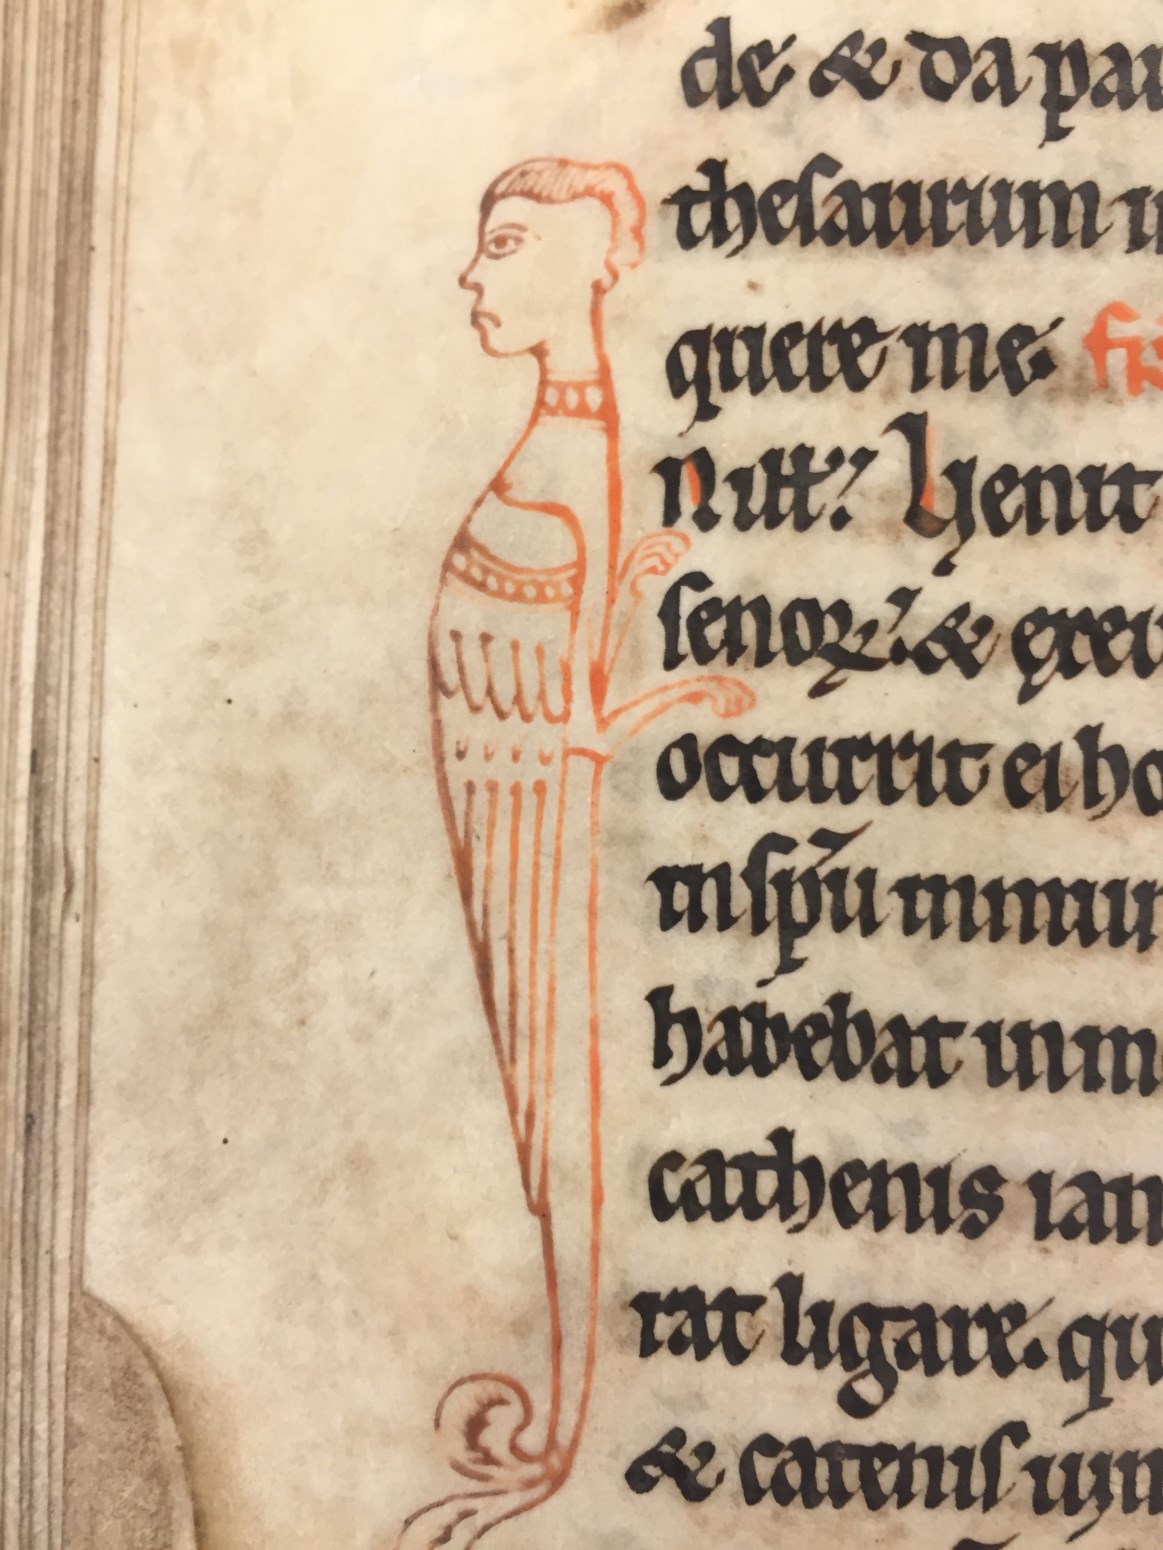 de & da pau
thesaurum in
quere me. fr
Nitt. Venit
senoꝝ. & exeu
occurrit ei ho
in spū inmun
habebat in m
cathenis iam
rat ligare. qu
& catenis uin